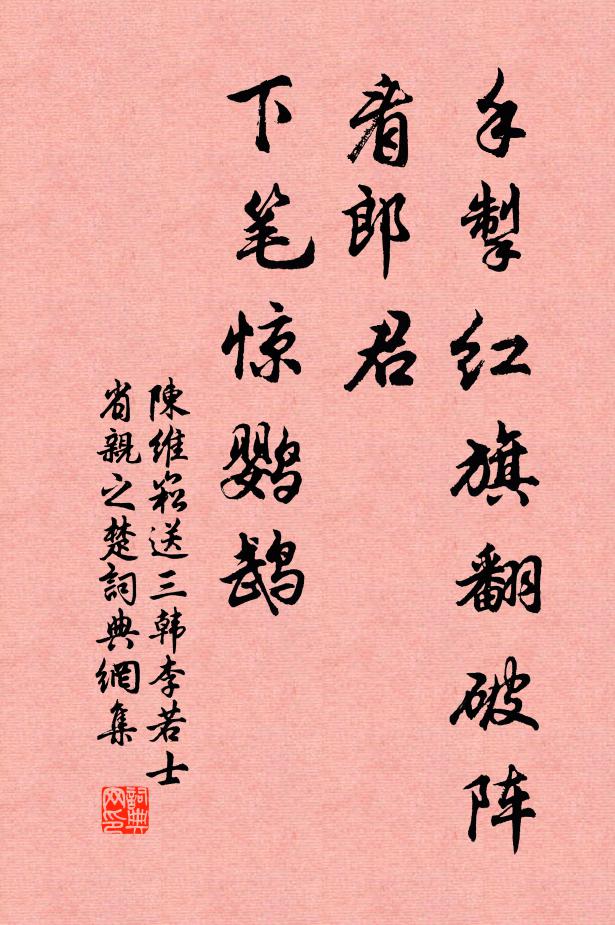 手掣红旗翻破阵
看郎君
下笔惊鹦鹉
陳維崧送三韩李若士
省親之楚詞典網集
詞典网印